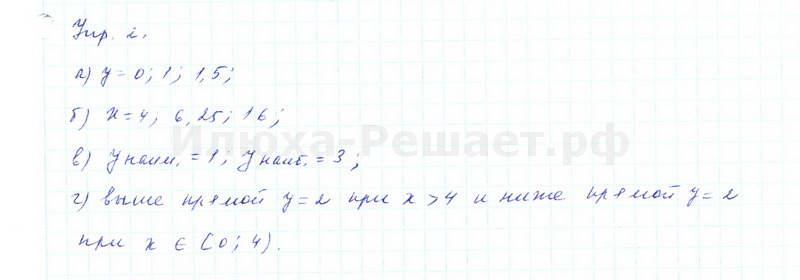 Упр. 2.
а) y = 0; 1; 1,5;
б) x = 4; 6,25; 16;
Илюха-Решает.рф
в) y наим. = 1; y наиб. = 3;
г) выше прямой y = 2 при x > 4 и ниже прямой y = 2
при x ∈ [0; 4).